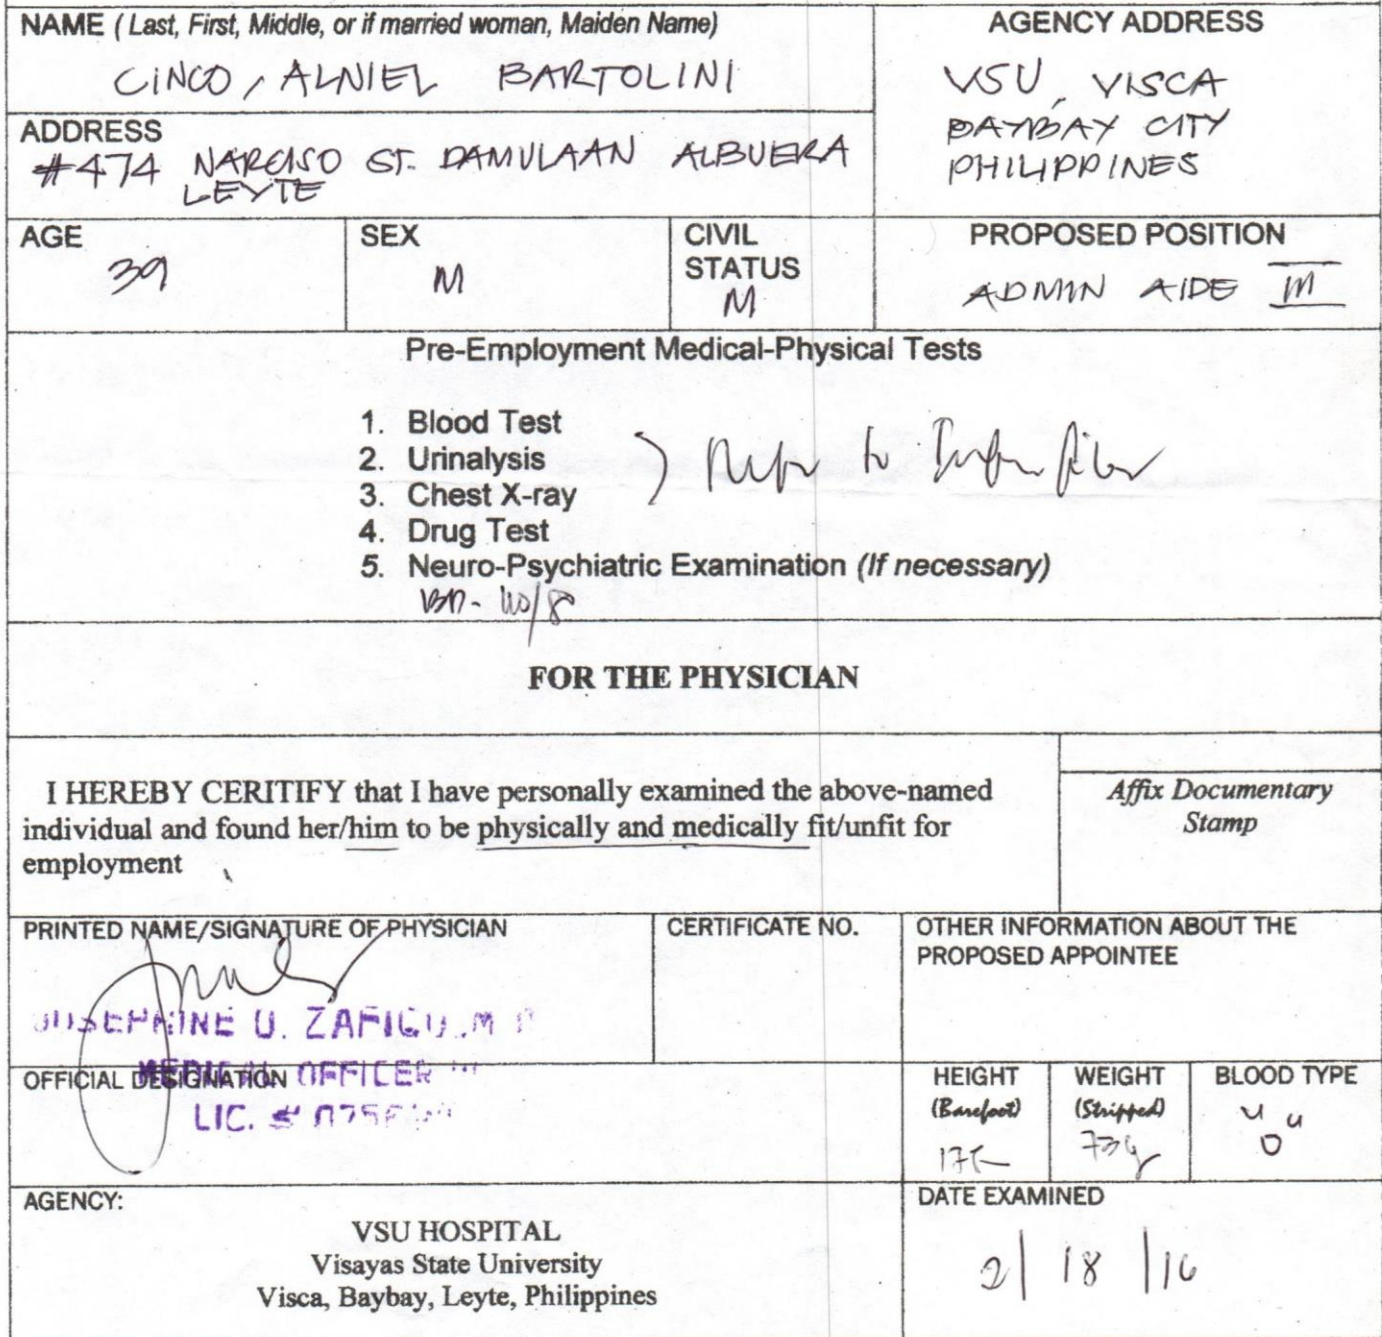 NAME (Last, First, Middle, or if married woman, Maiden Name)
CINCO, ALNIEL BARTOLINI
AGENCY ADDRESS
VSU, VISCA
BAYBAY CITY
PHILIPPINES
ADDRESS
#474 NARCISO ST. DAMULAAN ALBUERA
LEYTE
AGE
39
SEX
M
CIVIL
STATUS
M
PROPOSED POSITION
ADMIN AIDE III
Pre-Employment Medical-Physical Tests
1. Blood Test
2. Urinalysis
3. Chest X-ray
4. Drug Test
5. Neuro-Psychiatric Examination (If necessary)
Refer to
FOR THE PHYSICIAN
I HEREBY CERITIFY that I have personally examined the above-named
individual and found her/him to be physically and medically fit/unfit for
employment
Affix Documentary
Stamp
PRINTED NAME/SIGNATURE OF PHYSICIAN
JOSEPHINE U.
CERTIFICATE NO.
OTHER INFORMATION ABOUT THE
PROPOSED APPOINTEE
OFFICIAL DESIGNATION
MEDICAL OFFICER
LIC. #
HEIGHT
(Barefoot)
WEIGHT
(Stripped)
BLOOD TYPE
"O"
AGENCY:
VSU HOSPITAL
Visayas State University
Visca, Baybay, Leyte, Philippines
DATE EXAMINED
2/18/16